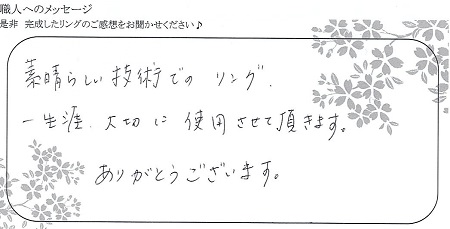 職人へのメッセージ
是非 完成したリングのご感想をお聞かせください♪
素晴らしい技術での リング.
一生涯、大切に 使用させて頂きます。
ありがとうございます。